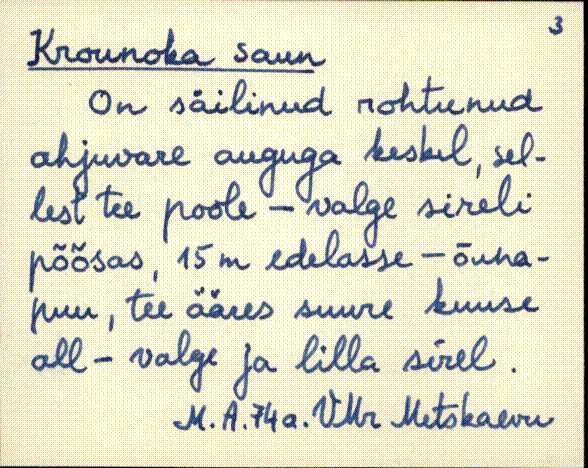 3
Krounoka saun
On säilinud rohtunud
ahjuvare auguga keskel, sel-
lest tee poole – valge sireli
põõsas, 15 m edelasse – õuna-
puu, tee ääres suure kuuse
all – valge ja lilla sirel.
M. A. 74a. VMr Metskaevu